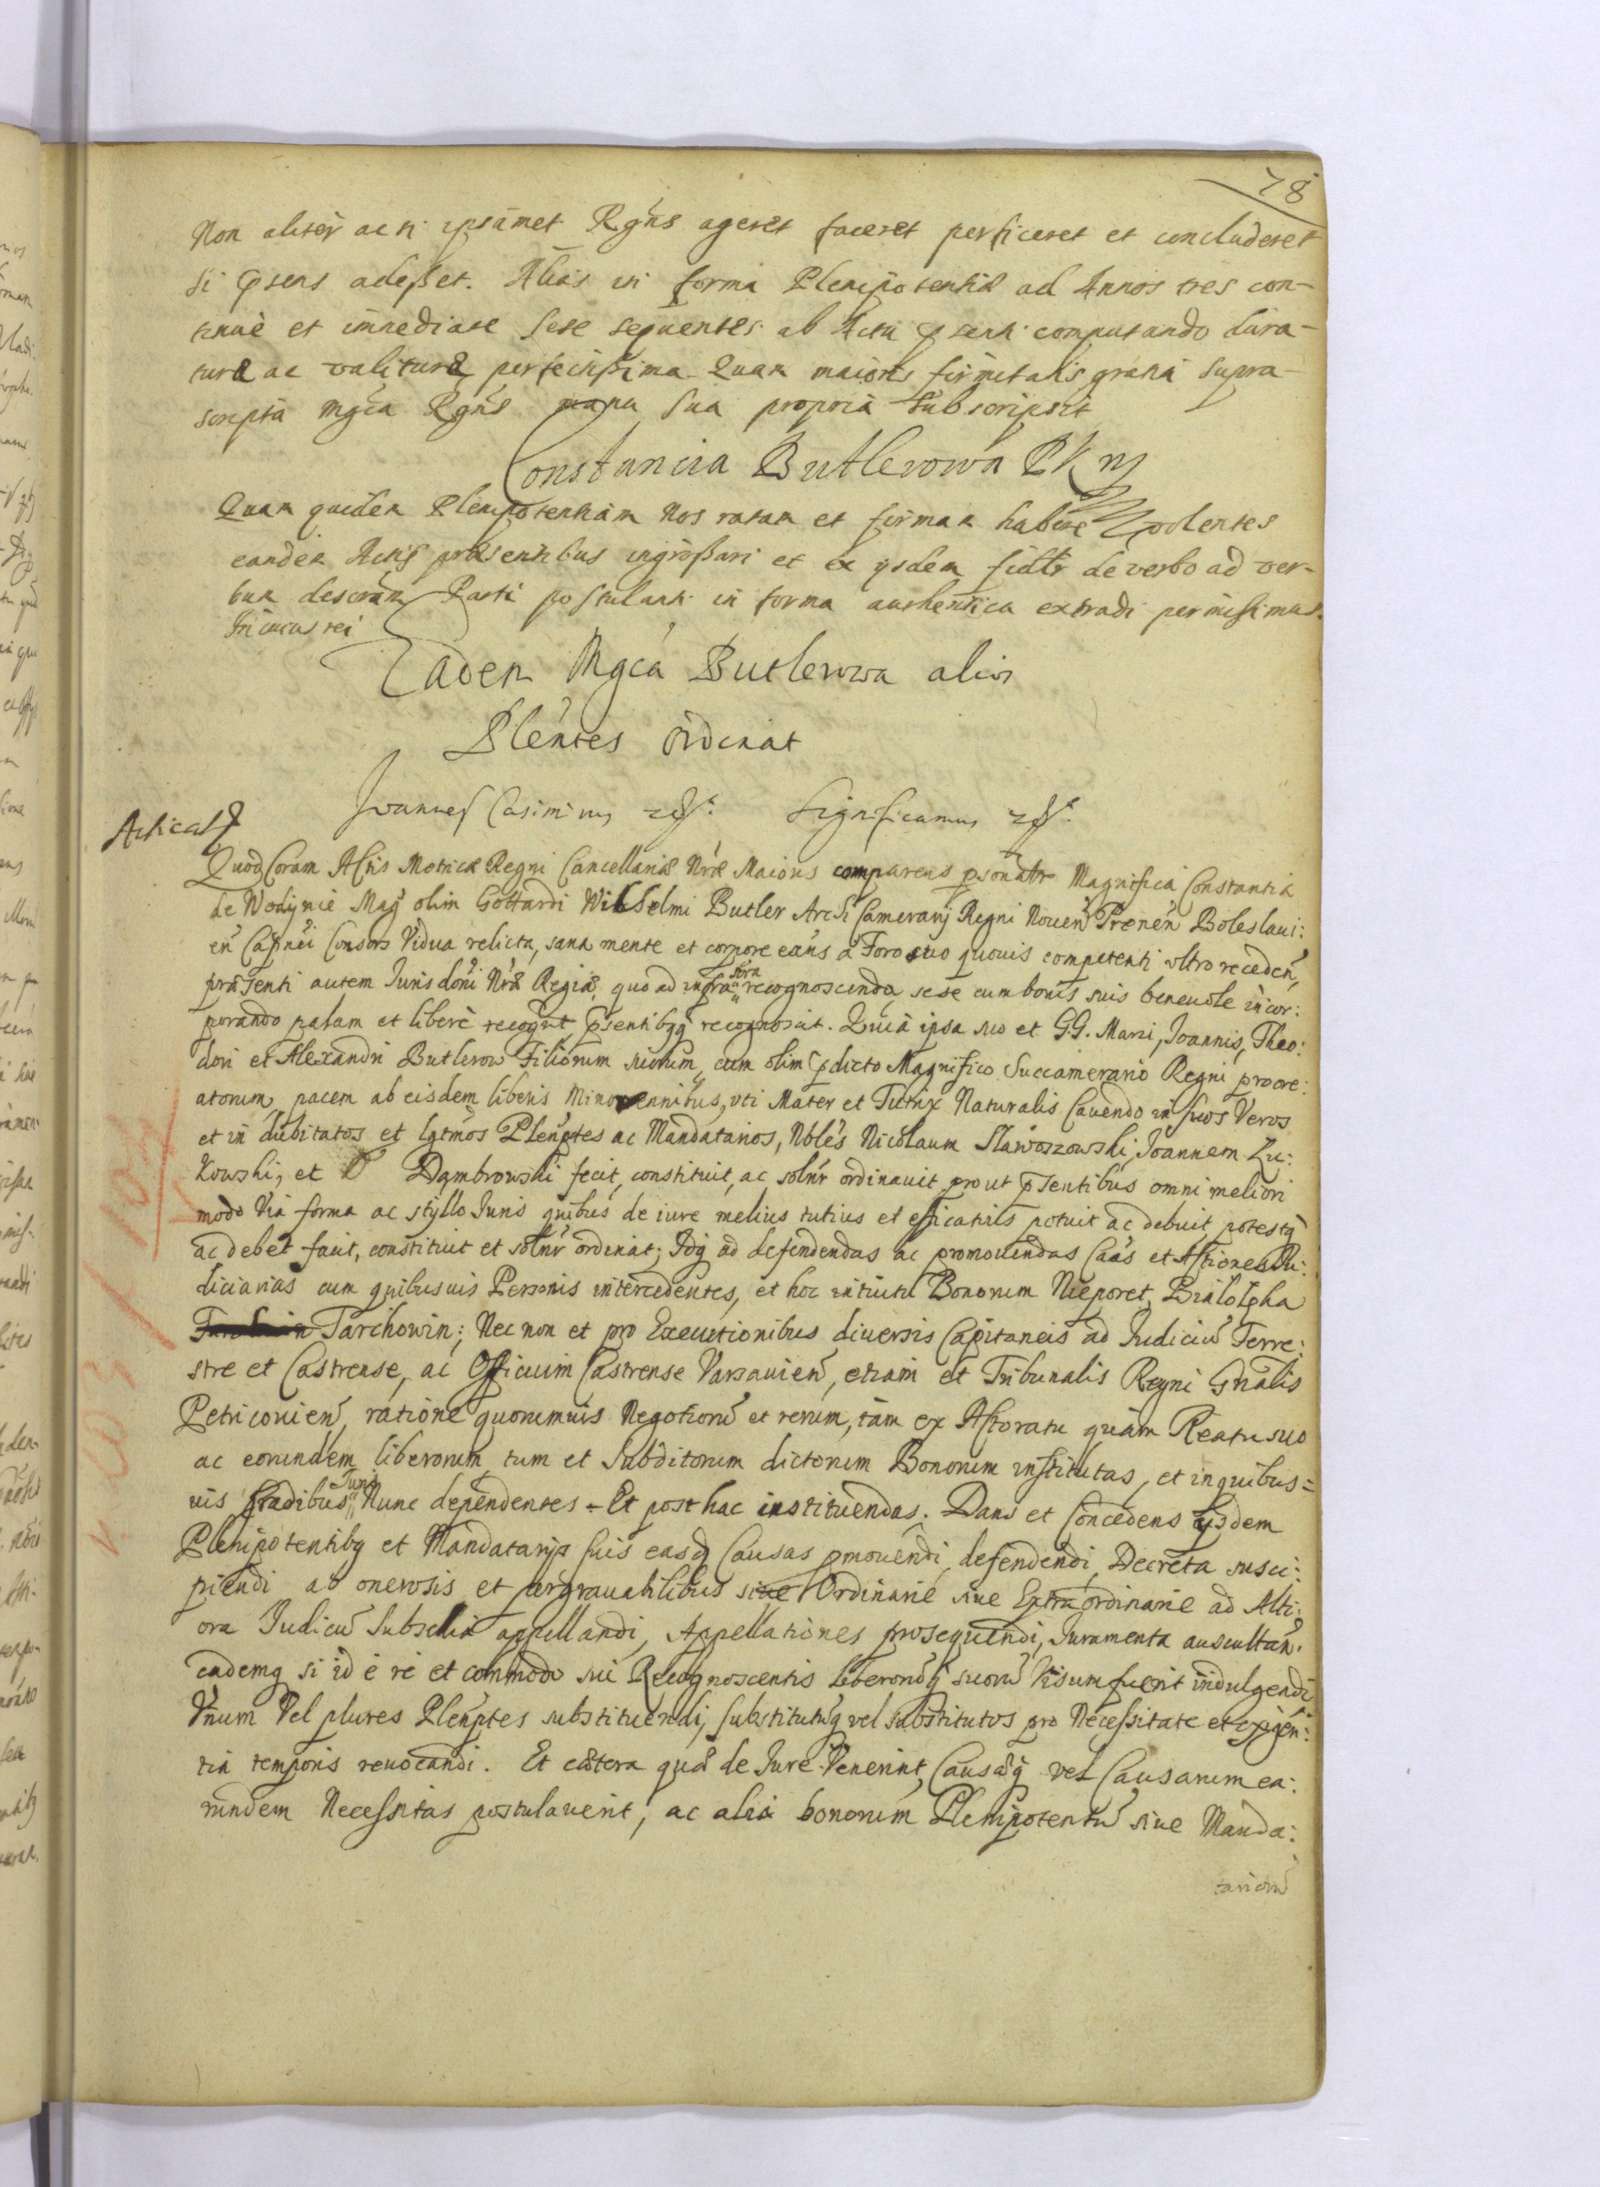 78
Non aliter ac si ipsamet Rgñs ageret faceret perficeret et concluderet
si psens adesset. Alias in forma Plenipotentiæ ad Annos tres con-
tinuè et immediate sese sequentes ab Actu psenti computando dura-
turæ ac valituræ perfectissima Quam maioris firmitatis gratia supra-
scripta Mgca Rgñs manu sua propria subscripsit
Constancia Butlerowa PKM
Quam quidem Plenipotentiam Nos ratam et firmam habere volentes
eandem Actis præsentibus ingrossari et ex ysdem fidltr de verbo ad ver-
bum descriptam Parti postulanti in forma authentica extradi permisimus.
In cuius rei
Eadem Mgca Butlerowa alios
Pleñtes ordinat
Joannes Casimirus etc. Significamus etc.
Quod Coram Actis Metricæ Regni Cancellariæ Nræ Maioris comparens psonaltr Magnifica Constantia
de Wodynie Mag olim Gottardi Wilhelmi Butler Archi Camerarij Regni Noueñ Preneñ Boleslaui:
eñ Capnei Consors Vidua relicta, sana mente et corpore eañs a Foro suo quouis competenti vltro recedeñ,
præsenti autem Jurisdoni Nræ Regiæ, quo ad infra recognoscenda sese cum bonis suis beneuole incor:
porando palam et liberè recogut psentibqq recognoscit. Quia ipsa suo et G.G. Marci, Joannis, Theo:
dori et Alexandri Butlerow Filiorum suorum, cum olim pdicto Magnifico Succamerario Regni procre:
atorum, pacem ab eisdem liberis Minorennibus, vti Mater et Tutrix Naturalis Cauendo in suos Veros
et in dubitatos et lgtmos Pleñptes ac Mandatarios, Nbles Nicolaum Sławoszowski, Joannem Zu:
kowski, et Dąmbrowski fecit, constituit, ac solnr ordinauit prout psentibus omni meliori
modo Via forma ac styllo Juris quibus de iure melius tutius et efficatius potuit ac debuit, potestq
ac debet facit, constituit et solnr ordinat; Idq ad defendendas ac promouendas Caas et Actiones Iu:
diciarias cum quibusuis Personis intercedentes, et hoc intuitu Bonorum Nieporet, Białołęka
Tarchowin; Nec non et pro Executionibus diuersis Capitaneis ad Judiciũ Terre:
stre et Castrense, ac Officium Castrense Varsauieñ, etiam et Tribunalis Regni Gñalis
Petricouieñ, ratione quorumuis Negotiorũ et rerum, tàm ex Actoratu quàm Reatu suo
ac eorundem liberorum tum et Subditorum dictorum Bonorum institutas, et in quibus=
uis gradibus Juris Nunc dependentes - Et posthac instituendas. Dans et Concedens ijsdem
Plenipotentibq et Mandatarijs suis easq Causas pmouendi, defendendi, Decreta susci:
piendi ab onerosis et pergrauabilibus siue Ordinariè siue Extraordinarie ad Alti:
ora Judicũ Subsellia appellandi, Appellationes prosequendi, Juramenta auscultan.
eademq si id è re et commodo sui Recognoscentis liberorũq suorũ Visum fuerit indulgendi
Vnum Vel plures Pleñptes substituendi, substitutũq vel substitutos pro Necessitate et exigen:
tia temporis reuocandi. Et cætera quæ de Jure Venerint, Causæq vel Causarum ea:
rundem Necessitas postulauerit, ac alia bonorum Plenipotentũ siue Manda:
tariorũ